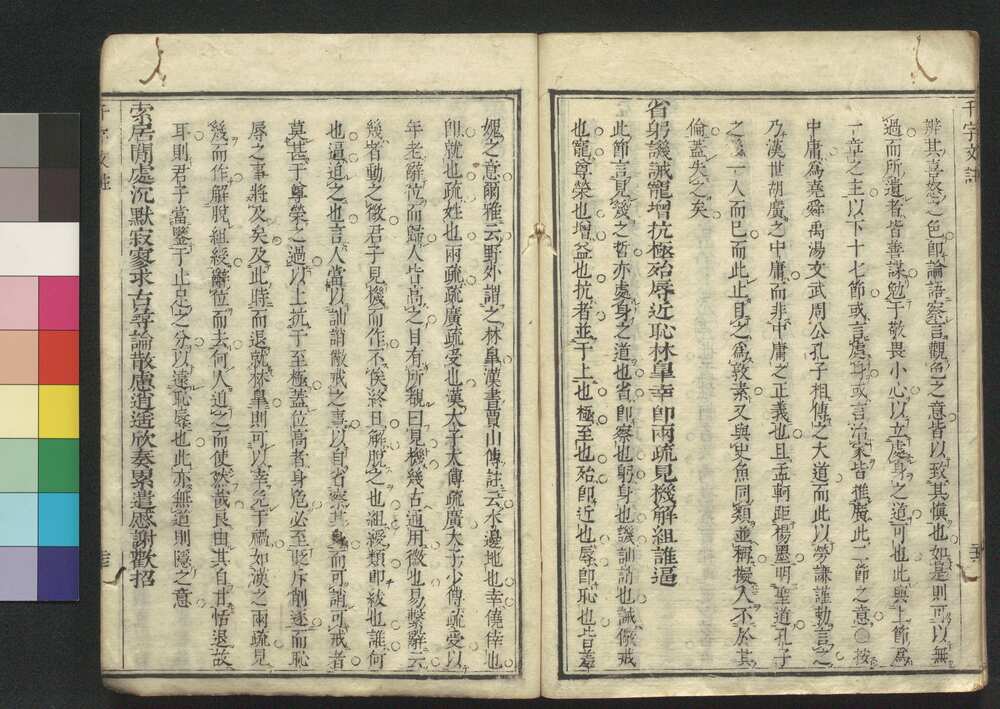 千字文註
辨其喜怒之色卽論語察言觀色之意皆以致其愼也如是則可以無
過而所遺者皆善謀勉于敬畏小心以立處身之道可也此與上節爲
一章之主以下十七節或言處身或言治家皆推廣此二節之意○按
中庸爲堯舜禹湯文武周公孔子相傳之大道而此以勞謙謹勅言之
乃漢世胡廣之中庸而非中庸之正義也且孟軻距楊墨明聖道孔子
之一人而已而此止目之爲敦素又與史魚同類並稱擬人不於其
倫蓋失之矣
省躬譏誡寵增抗極殆辱近恥林皐幸卽兩疏見機解組誰逼
此節言見幾之哲亦處身之道也省卽察也躬身也譏訕誚也誡儆戒
也寵尊榮也增益也抗者並于上也極至也殆卽近也辱卽恥也皆羞
媿之意爾雅云野外謂之林皐漢書賈山傳註云水邊地也幸僥倖也
卽就也疏姓也兩疏疏廣疏受也漢太子太傅疏廣太子少傅疏受以
年老辭位而歸人皆高之目有所覩曰見機幾古通用微也易繫辭云
幾者動之微君子見機而作不俟終日解脫之也組綬類卽紱也誰何
也逼迫之也言人當以訕誚儆戒之事以自省察其身而可誚可戒者
莫甚于尊榮之過以上抗于至極蓋位高者身危必至貶斥削逐而恥
辱之事將及矣及此時而退就林皐則可以幸免于禍如漢之兩疏見
幾而作解脫組綬辭位而去何人迫之而使然哉良由其自甘恬退故
耳則君子當鑒于止足之分以遠恥辱也此亦無道則隱之意
索居閒處沉默寂寥求古尋論散慮逍遙欣奏累遣慼謝歡招
千字文註